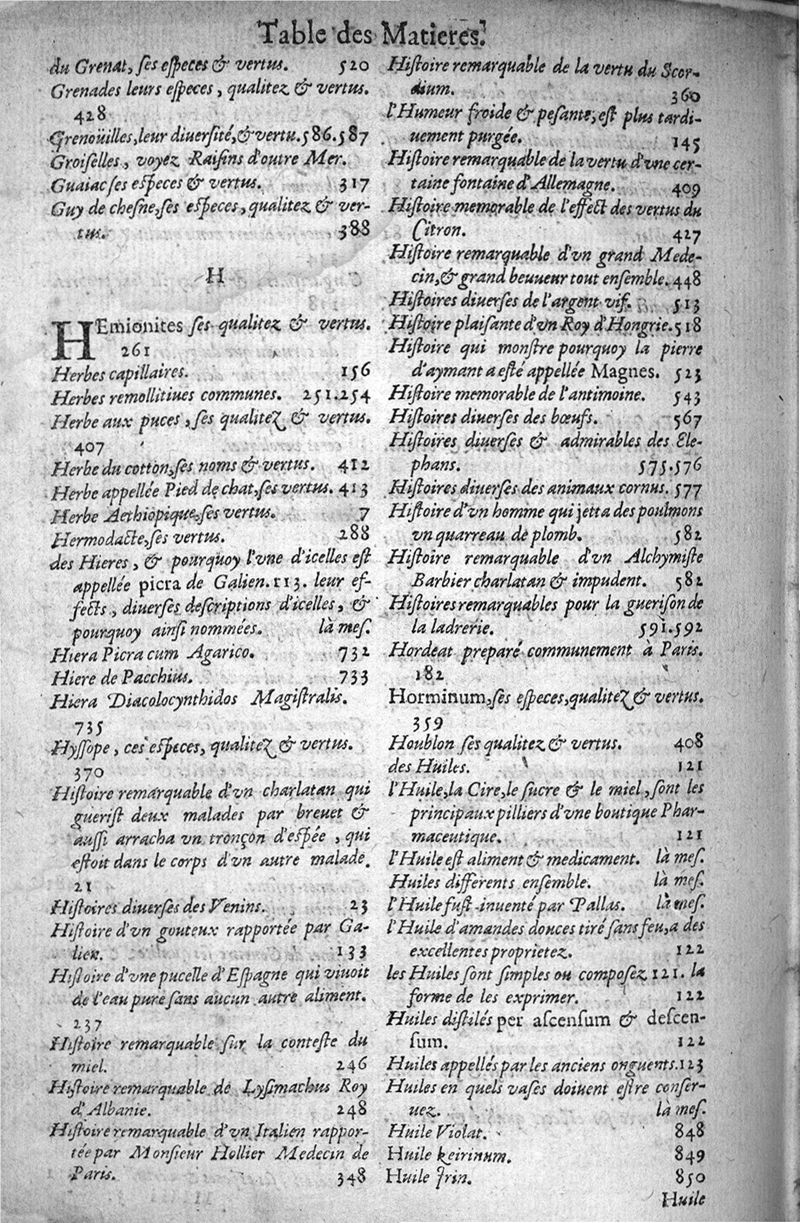 Table des Matieres.
du Grenat, ſes eſpeces & vertus. 520
Grenades leurs eſpeces, qualitez & vertus.
428
Grenoüilles, leur diuerſité, & vertu. 586.587
Groiſelles, voyez Raiſins d'outre Mer.
Guaiac ſes eſpeces & vertus. 317
Guy de cheſne, ſes eſpeces, qualitez & ver-
tus. 388
H
HEmionites ſes qualitez & vertus.
261
Herbes capillaires. 156
Herbes remollitiues communes. 251.254
Herbe aux puces, ſes qualitez & vertus.
407
Herbe du cotton, ſes noms & vertus. 412
Herbe appellée Pied de chat, ſes vertus. 413
Herbe Aethiopique, ſes vertus. 7
Hermodacte, ſes vertus. 288
des Hieres, & pourquoy l'vne d'icelles eſt
appellée picra de Galien. 113. leur ef-
fects, diuerſes deſcriptions d'icelles, &
pourquoy ainſi nommées. là meſ.
Hiera Picra cum Agarico. 732
Hiere de Pacchius. 733
Hiera Diacolocynthidos Magiſtralis.
735
Hyſſope, ces eſpeces, qualitez & vertus.
370
Hiſtoire remarquable d'vn charlatan qui
gueriſt deux malades par breuet &
auſſi arracha vn tronçon d'eſpée, qui
eſtoit dans le corps d'vn autre malade.
21
Hiſtoires diuerſes des Venins. 23
Hiſtoire d'vn gouteux rapportée par Ga-
lien. 133
Hiſtoire d'vne pucelle d'Eſpagne qui viuoit
de l'eau pure ſans aucun autre aliment.
237
Hiſtoire remarquable ſur la conteſte du
miel. 246
Hiſtoire remarquable de Lyſimachus Roy
d'Albanie. 248
Hiſtoire remarquable d'vn Italien rappor-
tée par Monſieur Hollier Medecin de
Paris. 348
Hiſtoire remarquable de la vertu du Scor-
dium. 360
l'Humeur froide & peſante, eſt plus tardi-
uement purgée. 145
Hiſtoire remarquable de la vertu d'vne cer-
taine fontaine d'Allemagne. 409
Hiſtoire memorable de l'effect des vertus du
Citron. 427
Hiſtoire remarquable d'vn grand Mede-
cin, & grand beuueur tout enſemble. 448
Hiſtoires diuerſes de l'argent vif. 513
Hiſtoire plaiſante d'vn Roy d'Hongrie. 518
Hiſtoire qui monſtre pourquoy la pierre
d'aymant a eſté appellée Magnes. 523
Hiſtoire memorable de l'antimoine. 543
Hiſtoires diuerſes des bœufs. 567
Hiſtoires diuerſes & admirables des Ele-
phans. 575.576
Hiſtoires diuerſes des animaux cornus. 577
Hiſtoire d'vn homme qui jetta des poulmons
vn quarreau de plomb. 582
Hiſtoire remarquable d'vn Alchymiſte
Barbier charlatan & impudent. 582
Hiſtoires remarquables pour la gueriſon de
la ladrerie. 591.592
Hordeat preparé communement à Paris.
182
Horminum, ſes eſpeces, qualitez & vertus.
359
Houblon ſes qualitez & vertus. 408
des Huiles. 121
l'Huile, la Cire, le ſucre & le miel, ſont les
principaux pilliers d'vne boutique Phar-
maceutique. 121
l'Huile eſt aliment & medicament. là meſ.
Huiles differents enſemble. là meſ.
l'Huile fuſt inuenté par Pallas. là meſ.
l'Huile d'amandes douces tiré ſans feu, a des
excellentes proprietez. 122
les Huiles ſont ſimples ou compoſez 121. la
forme de les exprimer. 122
Huiles diſtilés per aſcenſum & deſcen-
ſum. 122
Huiles appellés par les anciens onguents. 123
Huiles en quels vaſes doiuent eſtre conſer-
uez. là meſ.
Huile Violat. 848
Huile keirinum. 849
Huile Irin. 850
Huile